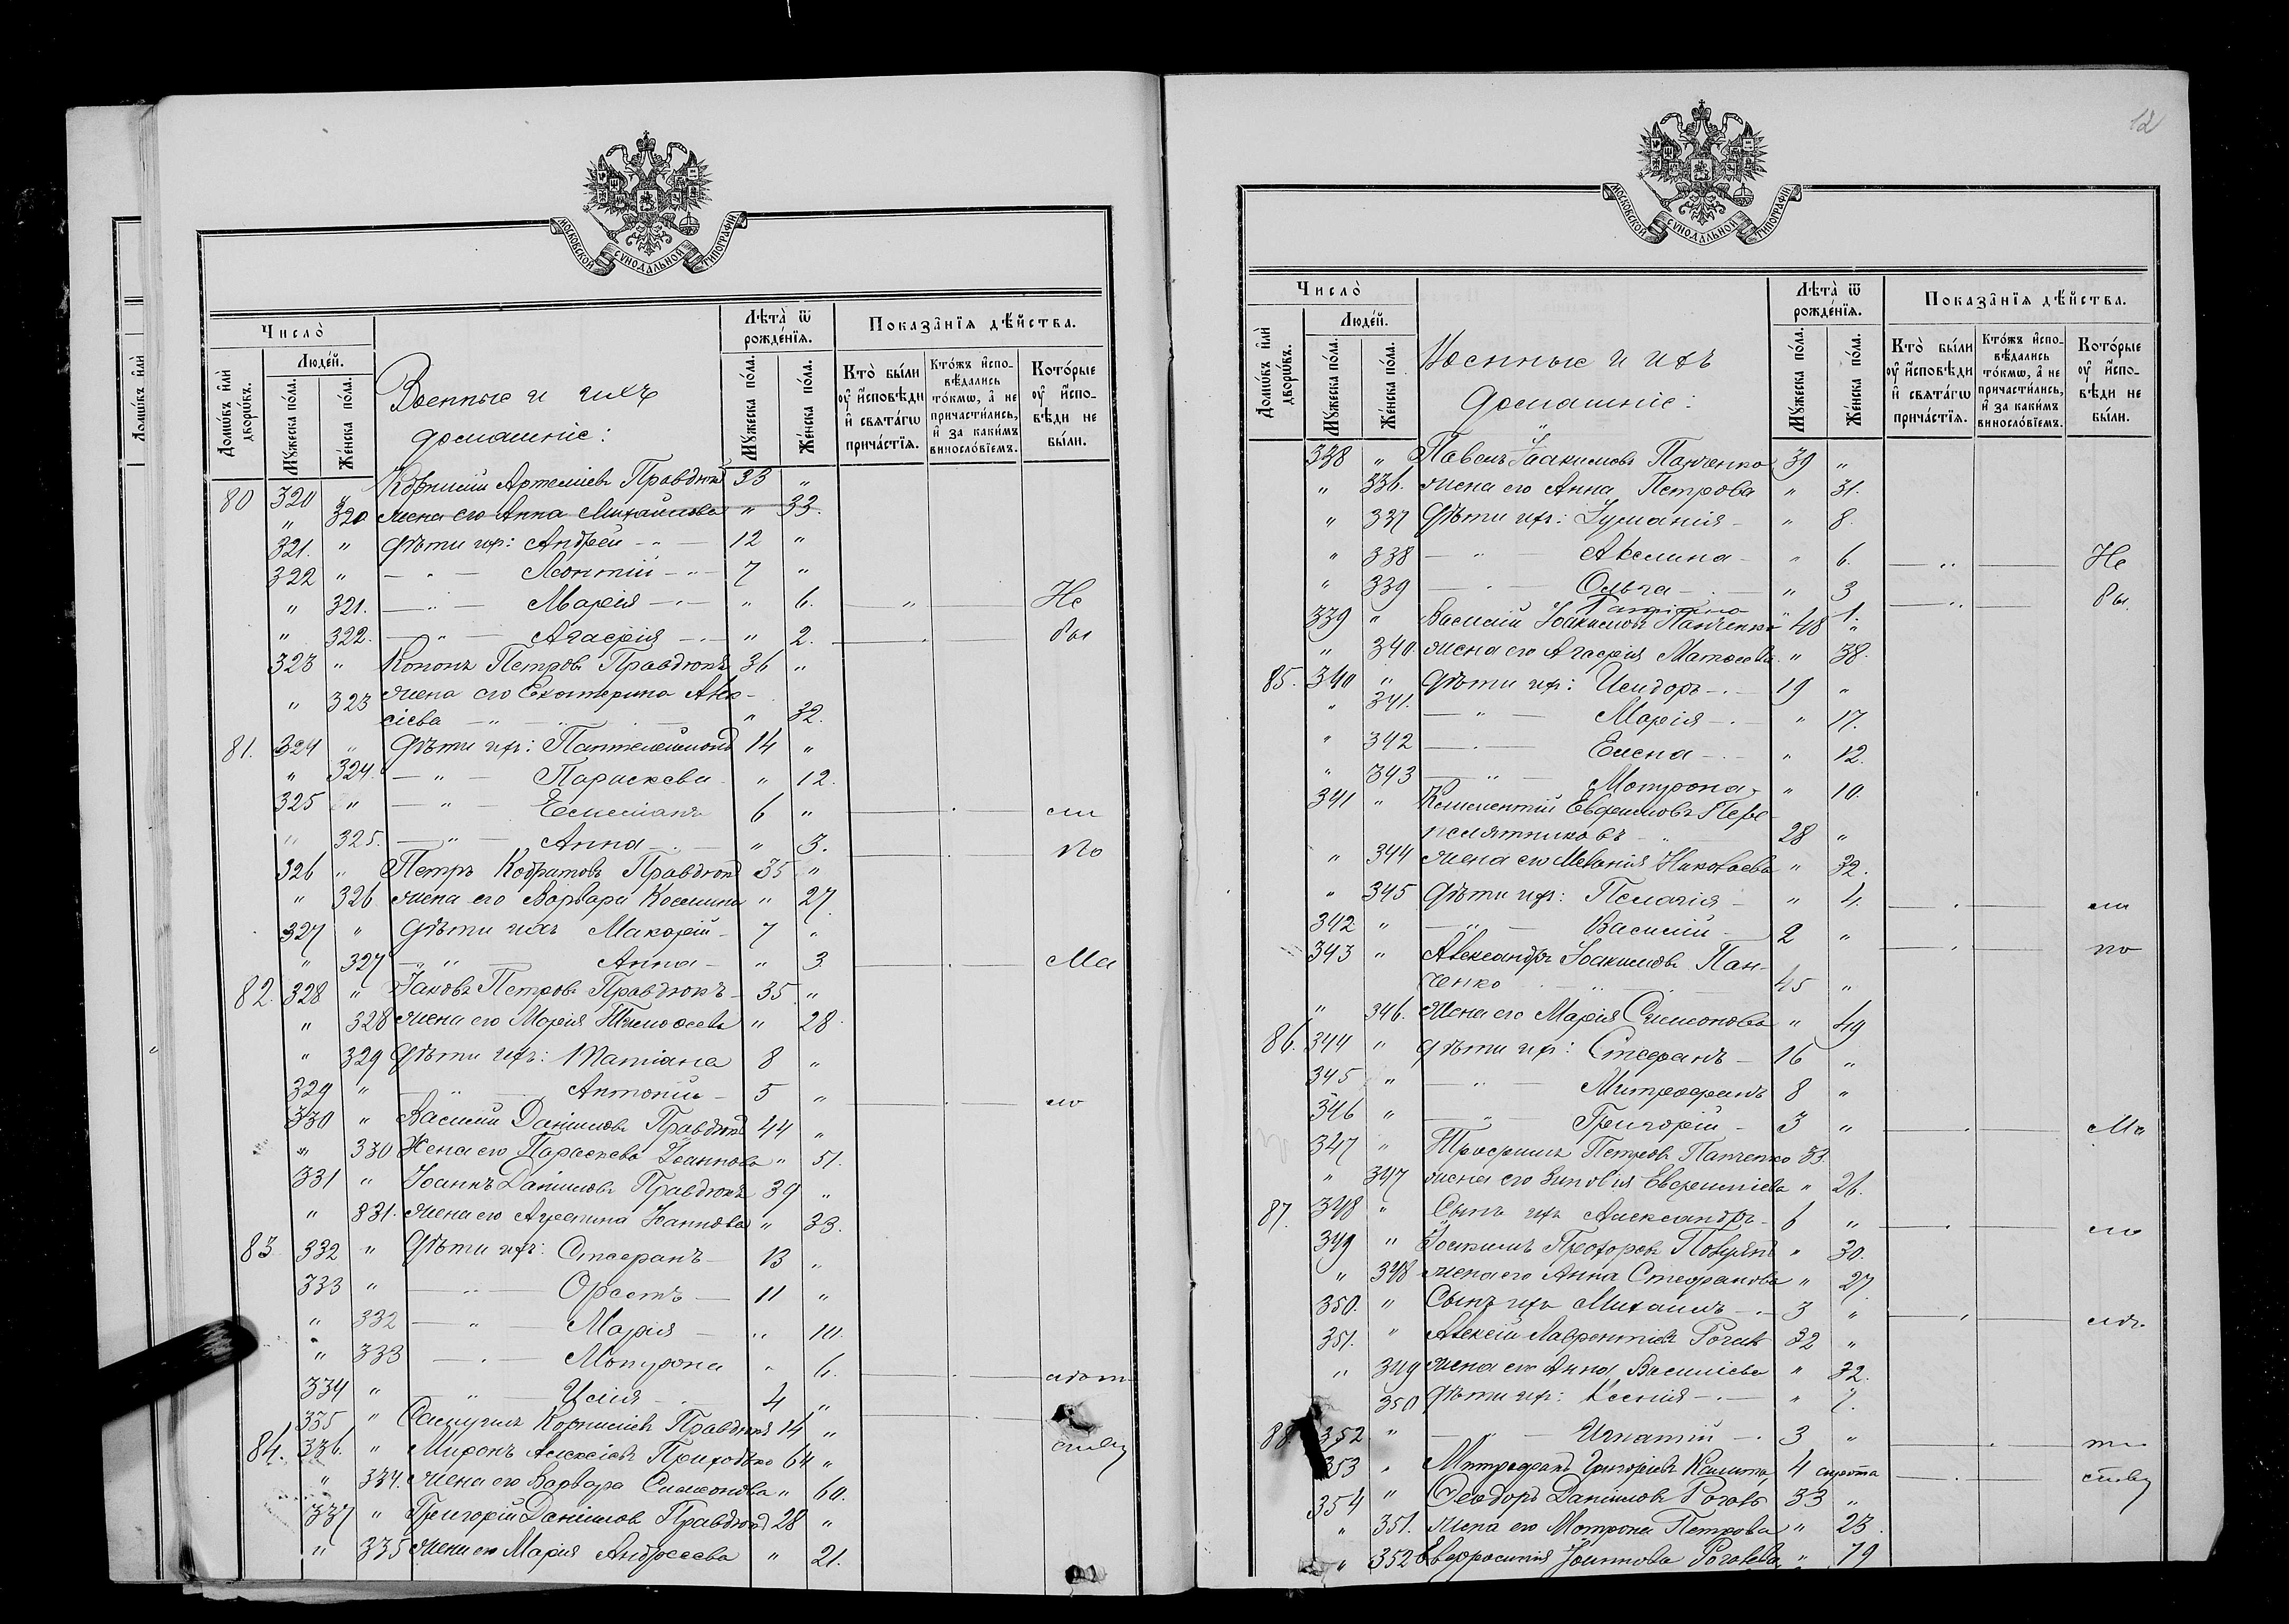 МОСКОВСКОЙ СѴНОДАЛЬНОЙ ТИПОГРАФІИ
Число̀
Людей.
Лѣта̀ ѿ рожденїѧ.
Показанїѧ дѣйства.
Домѡвъ и҆лѝ дворѡвъ.
Мꙋжеска пола.
Женска пола.
Военные и ихъ
домашніе:
Мꙋжеска пола.
Женска пола.
Кто̀ были ᲂу҆ и҆сповѣди и҆ свѧтагѡ причастїѧ.
Ктожъ и҆сповѣдались токмѡ, а҆ не причастились, и҆ за какимъ винословїемъ.
Которые ᲂу҆ и҆сповѣди не были.
80 320 " Корнилій Артеміевъ Правдюкъ 33 "
" 320 жена его Анна Михайлова " 33.
321. " Дѣти ихъ: Андрей 12 "
322 " — " — Леонтій 7 "
" 321. — " — Марія " 6. Не
" 322. — " — Агафія " 2. бы
323 " Кононъ Петровъ Правдюкъ 36 "
" 323 жена его Екатерина Алек-
сіева " 32.
81. 324 " Дѣти ихъ: Пантелеймонъ 14 "
" 324. — " — Параскева " 12.
325 " — " — Емеліанъ 6 " ли
" 325. — " — Анна " 3. по
326 " Петръ Кодратовъ Правдюкъ 35 "
" 326 жена его Варвара Космина " 27.
327 " Дѣти ихъ Макарій 7 "
" 327 — " — Анна " 3 Ма
82. 328 " Іаковъ Петровъ Правдюкъ 35 "
" 328 жена его Марія Тимофеева " 28.
" 329 Дѣти ихъ: Татіана 8 "
329 " — " — Антоній 5 " ло
330 " Василій Даніиловъ Правдюкъ 44 "
" 330 Жена его Параскева Іоаннова " 51.
331 " Іоаннъ Даніиловъ Правдюкъ 39 "
" 331. жена его Агрепина Іоаннова " 33.
83 332 " Дѣти ихъ: Стефанъ 13 "
333 " — " — Орестъ 11 "
" 332 — " — Марія " 10.
" 333 — " — Мотрона " 6. лѣт
334 " — " — Илія 4 "
335 " Самуилъ Корниліевъ Правдюкъ 14 " ству
84. 336. " Миронъ Алексіевъ Приходько 64 "
" 334. жена его Варвара Симеонова " 60.
337 " Григорій Даніиловъ Правдюкъ 28 "
" 335 жена его Марія Андреева " 21.
12
МОСКОВСКОЙ СѴНОДАЛЬНОЙ ТИПОГРАФІИ
Число̀
Людей.
Лѣта̀ ѿ рожденїѧ.
Показанїѧ дѣйства.
Домѡвъ и҆лѝ дворѡвъ.
Мꙋжеска пола.
Женска пола.
Военные и ихъ
домашніе:
Мꙋжеска пола.
Женска пола.
Кто̀ были ᲂу҆ и҆сповѣди и҆ свѧтагѡ причастїѧ.
Ктожъ и҆сповѣдались токмѡ, а҆ не причастились, и҆ за какимъ винословїемъ.
Которые ᲂу҆ и҆сповѣди не были.
338 " Павелъ Іоакимовъ Панченко 39 "
" 336. жена его Анна Петрова " 31.
" 337 Дѣти ихъ: Іуліанія " 8.
" 338 — " — Акелина " 6. Не
" 339 — " — Ольга " 3 бы
Татіана 1.
339 " Василій Іоакимовъ Панченко 48 "
" 340 жена его Агафія Матвеева " 38.
85. 340 " Дѣти ихъ: Исидоръ 19 "
" 341. — " — Марія " 17.
" 342 — " — Елена " 12.
" 343 — " — Мотрона " 10.
341 " Климентій Евфимовъ Пере-
пелятниковъ 28 "
" 344 жена его Меланія Николаева " 32.
" 345 Дѣти ихъ: Пелагія " 4. ли
342 " — " — Василій 2 "
343 " Александръ Іоакимовъ Пан- по
ченко 45 "
" 346. жена его Марія Симеонова " 49
86. 344 " Дѣти ихъ: Стефанъ 16 "
345 " — " — Митрофанъ 8 "
346 " — " — Григорій 3 " Ма
347 " Трофимъ Петровъ Панченко 33.
" 347 жена его Зиновія Евфиміева " 26.
87. 348 " Сынъ ихъ Александръ 6 " ло
349 " Іоакимъ " 30.
" 348 жена его Анна Стефанова " 27.
350. " Сынъ ихъ Михаилъ 3 " лѣ
351. " Алексій Лаврентіевъ Рогавъ 32 "
" 349 жена его Анна Василіева " 32.
350 Дѣти ихъ: Ксенія " 7.
88 352 " — " — Игнатій 3 "
353 " Митрофанъ Григоріевъ Калита 4 сирота ству
354 " Феодоръ Даніиловъ Роговъ 33 "
" 351. жена его Мотрона Петрова " 23.
" 352 Евфросинія Іоаннова Рогавева " 79